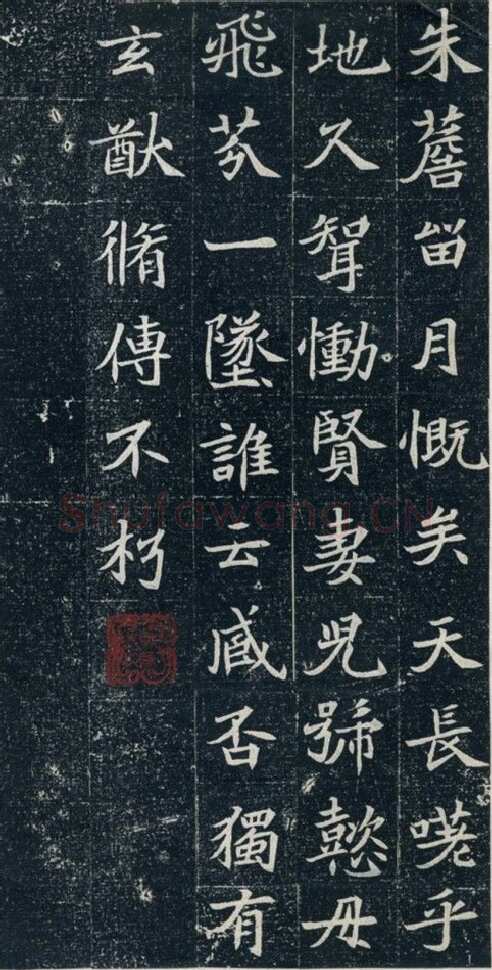 朱薝畄月慨矣天長嗟乎
地久聟慟賢妻児號懿母
飛芬一墜誰云臧否獨有
玄猷脩傳不朽
Shufawang.CN